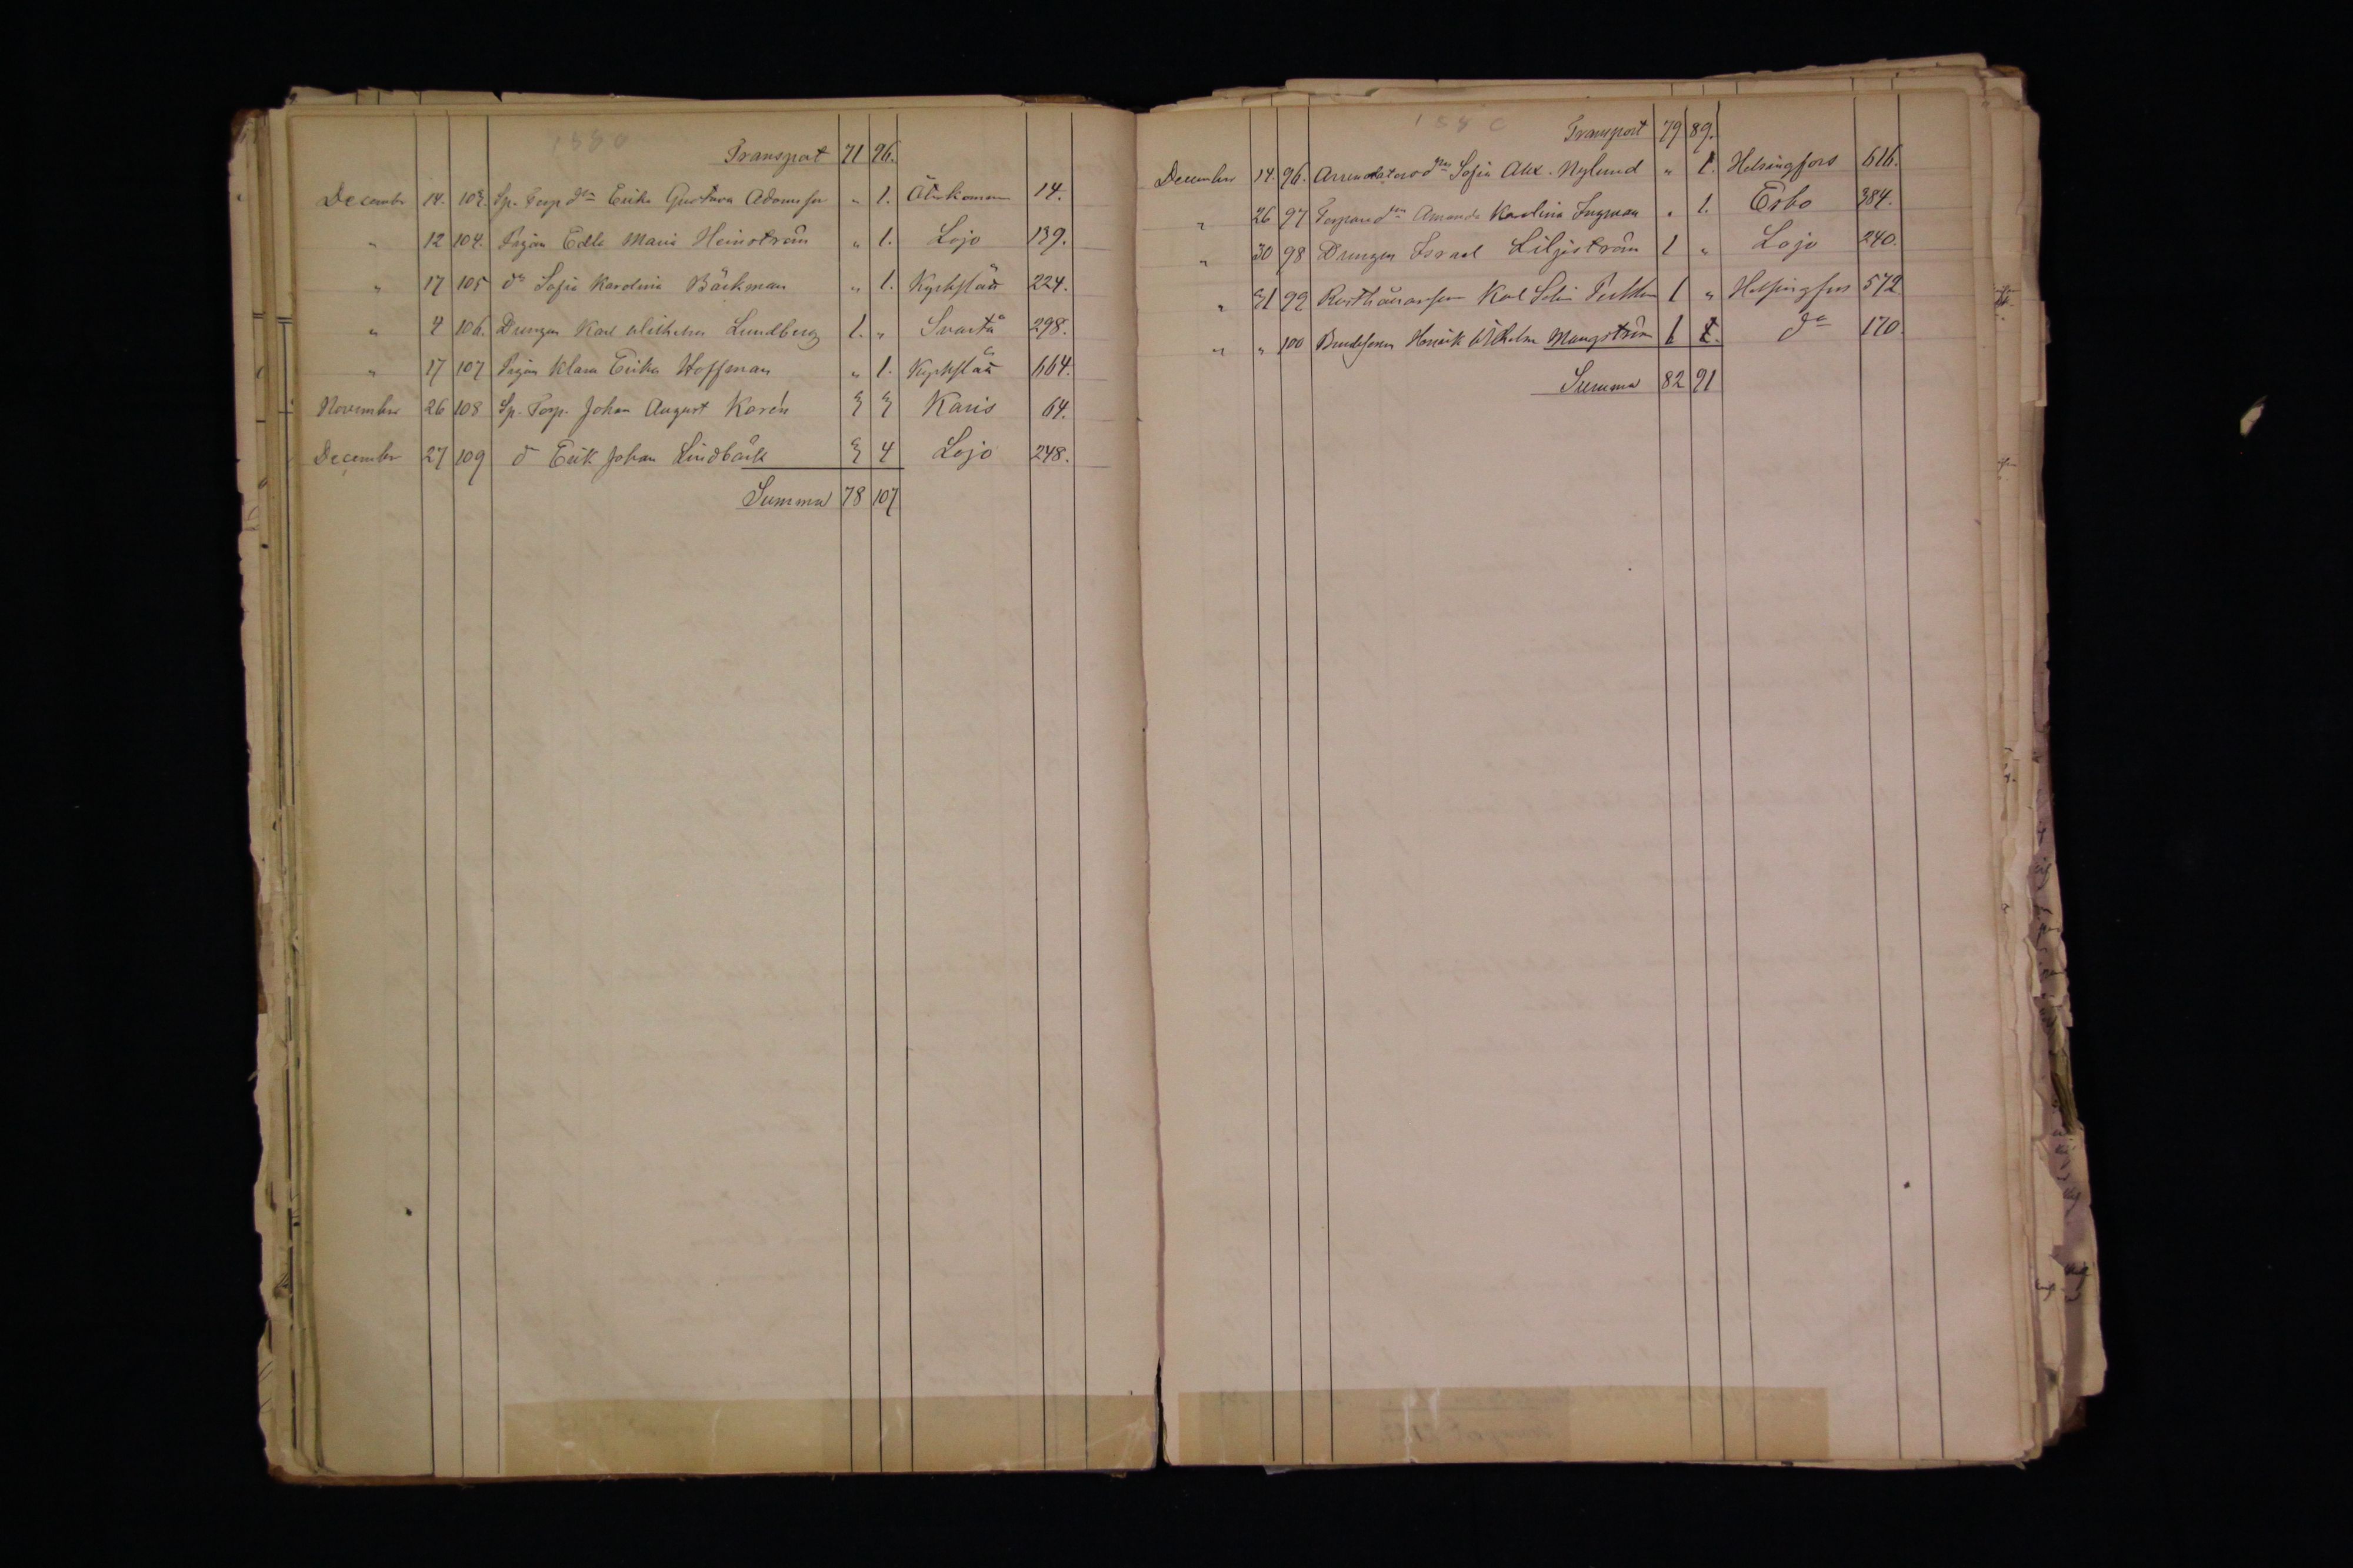 1880
Transport 71 96.
December 14. 103. Sp. Torp dn Erika Gustava Adamsson „ 1. 14.
„ 12 104. Pigan Edla Maria Heinström „ 1. Lojo 139.
„ 17 105 do Sofia Karolina Bäckman „ 1. Kyrkslätt 224.
„ 4 106. Drengen Karl Wilhelm Lundberg 1. „ Svartå 298.
„ 17 107 Pigan Klara Erika Hoffman „ 1. Kyrkslätt 664.
November 26 108 Sp. Torp. Johan August Korén 3 3 Karis 64.
December 27 109 d Erik Johan Lindbäck 3 4 Lojo 248.
Summa 78 107
1880
Transport 79 89.
December 14. 96. Arrendators dn Sofia Alex. Nylund „ 1. Helsingfors 616.
„ 26 97 Torpare dn Amanda Karolina Ingman „ 1. Esbo 384.
„ 30 98 Drengen Israel Liljeström 1 „ Lojo 240.
„ 31 99 Karl 1 „ Helsingfors 572
„ „ 100 Bondesonen Henrik Wilhelm Mangström 1 1. do 170.
Summa 82 91